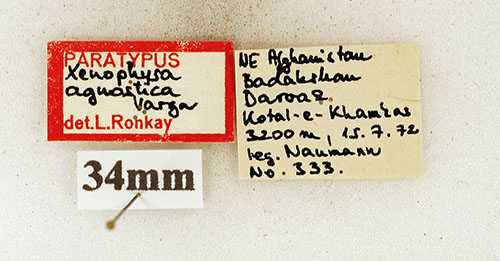 PARATYPUS
Xenophysa
agnostica
Varga
det.L.Ronkay
NE Afghanistan
Badakshan
Darwaz
Kotal-e-Khambas
3200m, 15.7.72
leg. Naumann
No. 333.
34mm